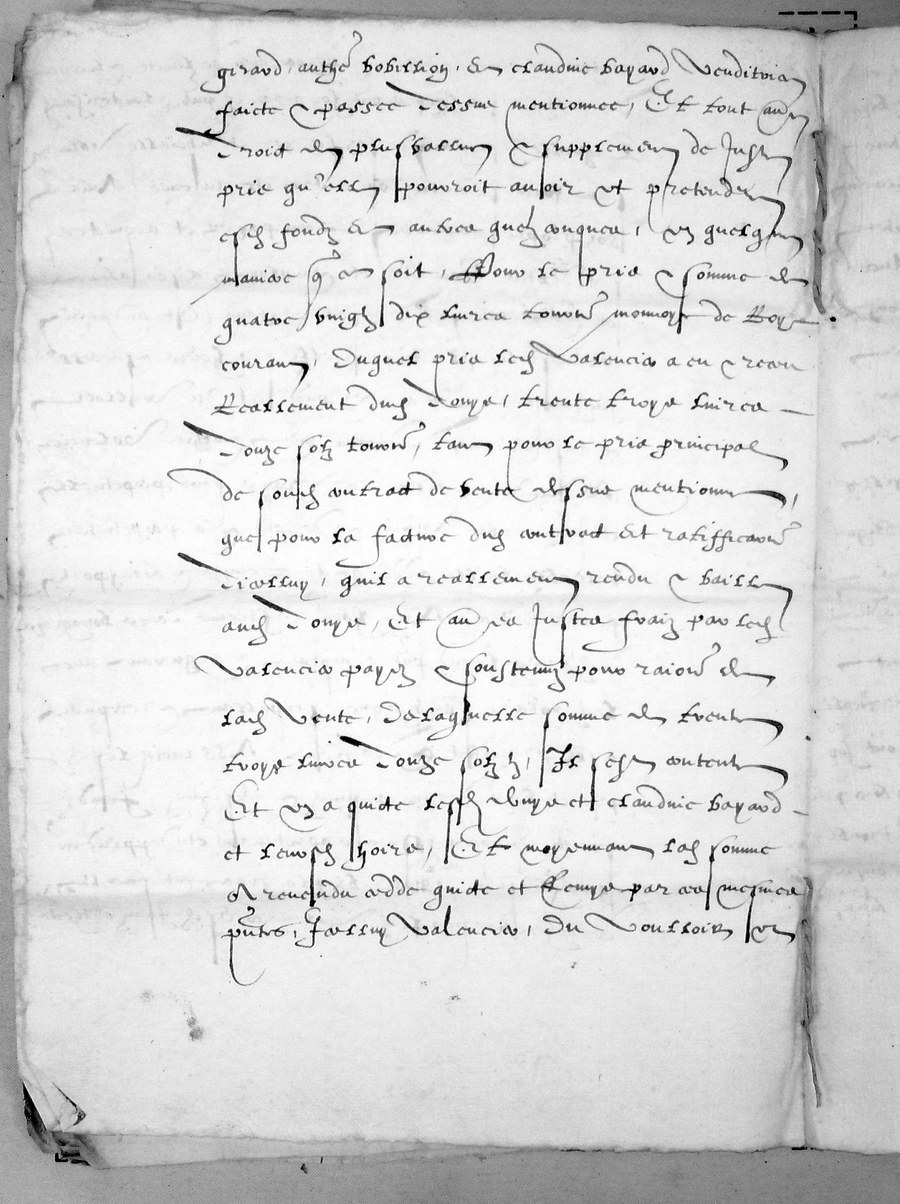 girard, anthe bobillion, et claudine bayard venditrix
faicte & passee dessus mentionnee, Et tout aue
droict de plusvallue & supplement de juste
prix qu'elle pouvoit avoir et pretendre
esd fondz et autres quelzconques, en quelque
maniere q ce soit, Pour le prix & somme de
quatre vingtz dix livres tourn monnoye de Roy
courant, duquel prix led Valencier a eu & receu
Reallement dud Donye, trente troys livres
Douze solz tourn, tant pour le prix principal
de sond contract de vente dessus mentionne,
que pour la facture dud contract et ratifficaon
d'icelluy, quil a reallement rendu & baille
aud Donye, Et au es justes fraiz par led
Valencier payez & soustenuz pour raison de
lad vente, de laquelle somme de trente
troys livres douze solz tz, Il sest contente
Et en a quicte lesd donye et claudine bayard
et leursd hoirs, Et moyennant lad somme
A revendu cedde quicte et Remys par ces mesmes
pntes, Icelluy Valencier, du voulloir et